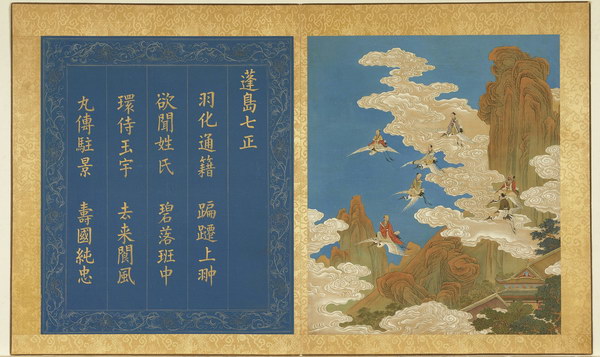 蓬島七正
羽化通籍 蹁蹮上翀
欲聞姓氏 碧落班中
環侍玉宇 去来閬風
九傳駐景 壽國純忠